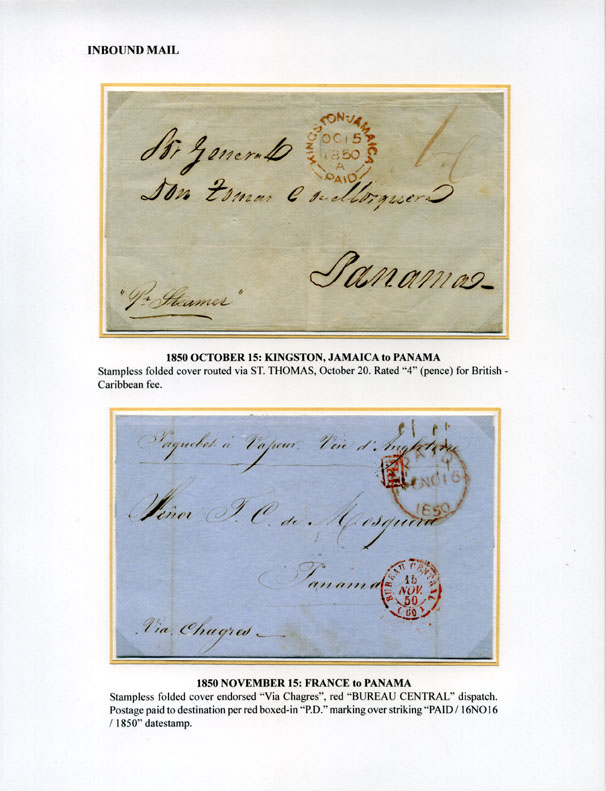 INBOUND MAIL
KINGSTON-JAMAICA
OC 15
1850
A
PAID
Sor General
Don Tomas C de Mosquera
Panama
"Pr Steamer"
1850 OCTOBER 15: KINGSTON, JAMAICA to PANAMA
Stampless folded cover routed via ST. THOMAS, October 20. Rated "4" (pence) for British -
Caribbean fee.
Paquebot à Vapeur. Voie d'Angleterre
P.D.
PAID
NO16
1850
Señor T. C. de Mosquera
Panama
BUREAU CENTRAL
15
NOV.
50
(60)
Via Chagres
1850 NOVEMBER 15: FRANCE to PANAMA
Stampless folded cover endorsed "Via Chagres", red "BUREAU CENTRAL" dispatch.
Postage paid to destination per red boxed-in "P.D." marking over striking "PAID / 16NO16
/ 1850" datestamp.